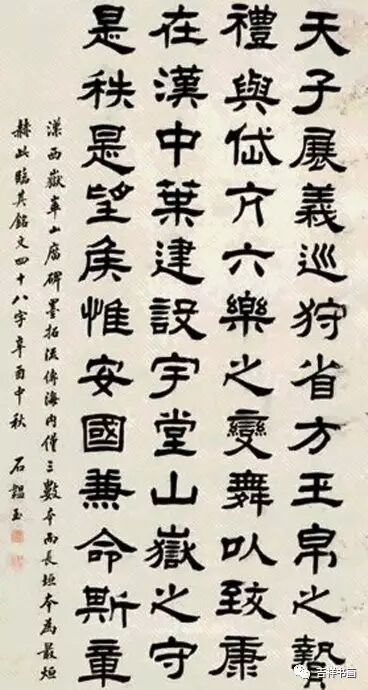 天子展義巡狩省方玉帛之贄
禮與岱亢六樂之變舞以致康
在漢中葉建設宇堂山嶽之守
是秩是望侯惟安國兼命斯章
漢西嶽華山廟碑墨拓流傳海内僅三數本而長垣本為最烜
赫此臨其銘文四十八字辛酉中秋 石韞玉
吉祥书画